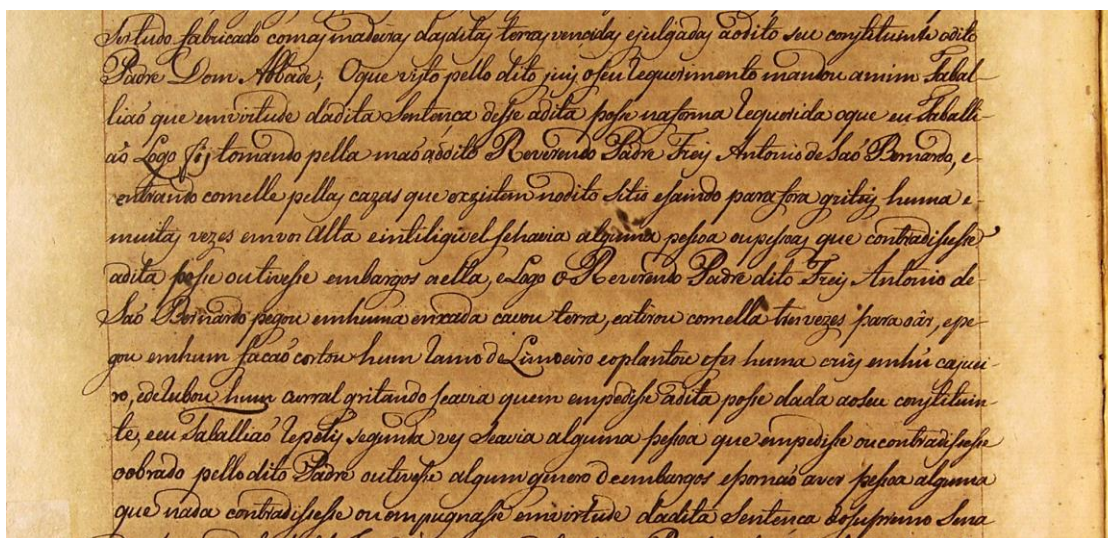 ser tudo fabricado comas madeiras dasditas terras vencidas ejulgadas aodito seu constituinte odito
Padre Dom Abbade; Oque visto pello dito juis oseu Requerimento mandou amim Tabal-
liaõ que emvirtude dadita Sentença desse adita posse naforma Requerida oque eu Taballi-
aõ Logo fis, tomando pella maõ aodito Reverendo Padre Freij Antonio de Saõ Bernardo, e-
entrando comelle pellas cazas que exzistem nodito sitio esaindo para fora gritej huma e-
muitas vezes emvos Alta eintiligivel sehavia alguma pessoa oupessoas que contradisesse
adita posse outivesse embargos aella, eLogo o Reverendo Padre dito Freij Antonio de-
Saõ Bernardo pegou emhuma enxada cavou terra, eatirou comella tres vezes para oár, epe-
gou emhum facaõ cortou hum Ramo de Limoeiro eoplantou efes huma crus emhũ cajuei-
ro, ederubou hum curral gritando seavia quem empedisse adita posse dada aoseu constituin-
te, eeu Taballiaõ Repetij segunda ves seavia alguma pessoa que empedisse oucontradisesse
oobrado pello dito Padre outivesse algum genero deembargos epornaõ aver pessoa alguma
que nada contradissesse ouempugnasse emvirtude dadita Sentença dosupremo Sena